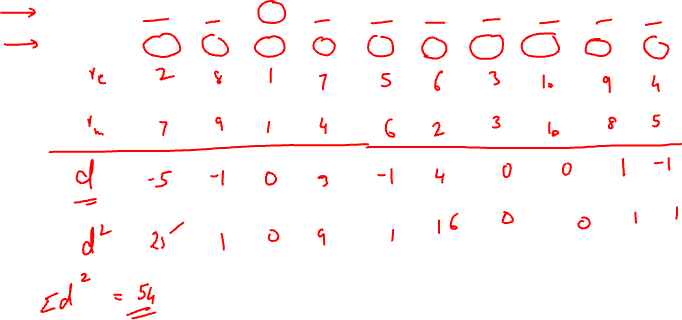 → — — O — — — — — — —
→ O O O O O O O O O O
r_e 2 8 1 7 5 6 3 10 9 4
r_m 7 9 1 4 6 2 3 10 8 5
d -5 -1 0 3 -1 4 0 0 1 -1
d² 25 1 0 9 1 16 0 0 1 1
Σd² = 54